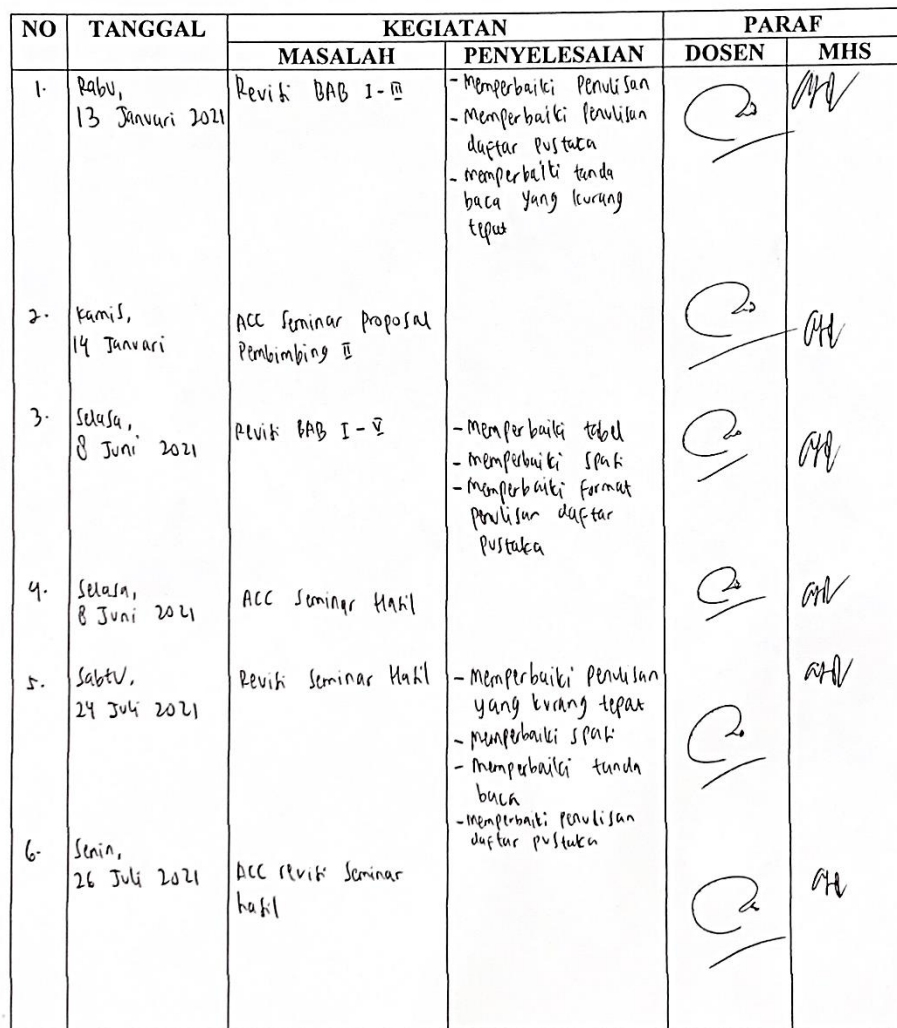 NO TANGGAL KEGIATAN PARAF
MASALAH PENYELESAIAN DOSEN MHS
1. Rabu,
13 Januari 2021
Revisi BAB I-III
- Memperbaiki Penulisan
- Memperbaiki Penulisan
daftar Pustaka
- memperbaiki tanda
baca yang kurang
tepat
2. Kamis,
14 Januari
ACC Seminar Proposal
Pembimbing II
3. Selasa,
8 Juni 2021
Revisi BAB I - V
- Memperbaiki tabel
- memperbaiki spasi
- Memperbaiki format
penulisan daftar
Pustaka
4. Selasa,
8 Juni 2021
ACC Seminar Hasil
5. Sabtu,
24 Juli 2021
Revisi Seminar Hasil
- Memperbaiki penulisan
yang kurang tepat
- memperbaiki spasi
- Memperbaiki tanda
baca
- memperbaiki penulisan
daftar pustaka
6. Senin,
26 Juli 2021
ACC revisi Seminar
hasil